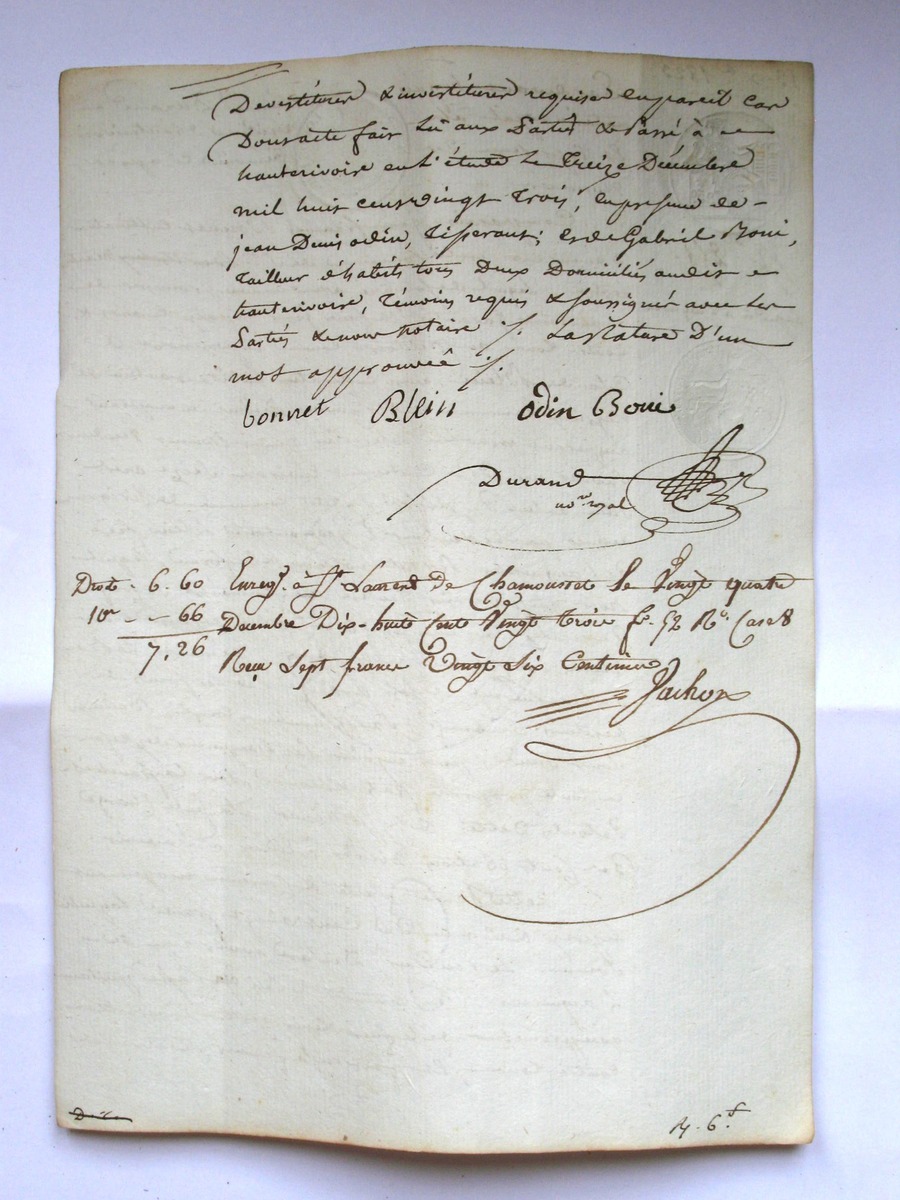 Devestitures & investitures requises en pareil cas
Dont acte fait lu aux Partiés & Passé à
hauterivoire en l'étude Le Treize Décembre
mil huit cent vingt Trois, en presence de
jean Denis odin, Tisserant; et de Gabriel Boui,
Tailleur d'habits tous Deux Domiciliés audit
hauterivoire, Témoins requis & soussignés avec les
Partiés & nous notaire ./. La Rature D'un
mot approuveé ./.
bonnet Blein odin Boui
Durand
nore royal
Droits . 6. 60 Enregt. à St Laurent de Chamousset le Vingt quatre
10me - - 66 Decembre Dix-huit Cent Vingt trois fo. 52 Ro. Case 8
7, 26 Reçu Sept francs Vingt Six Centimes
6.f